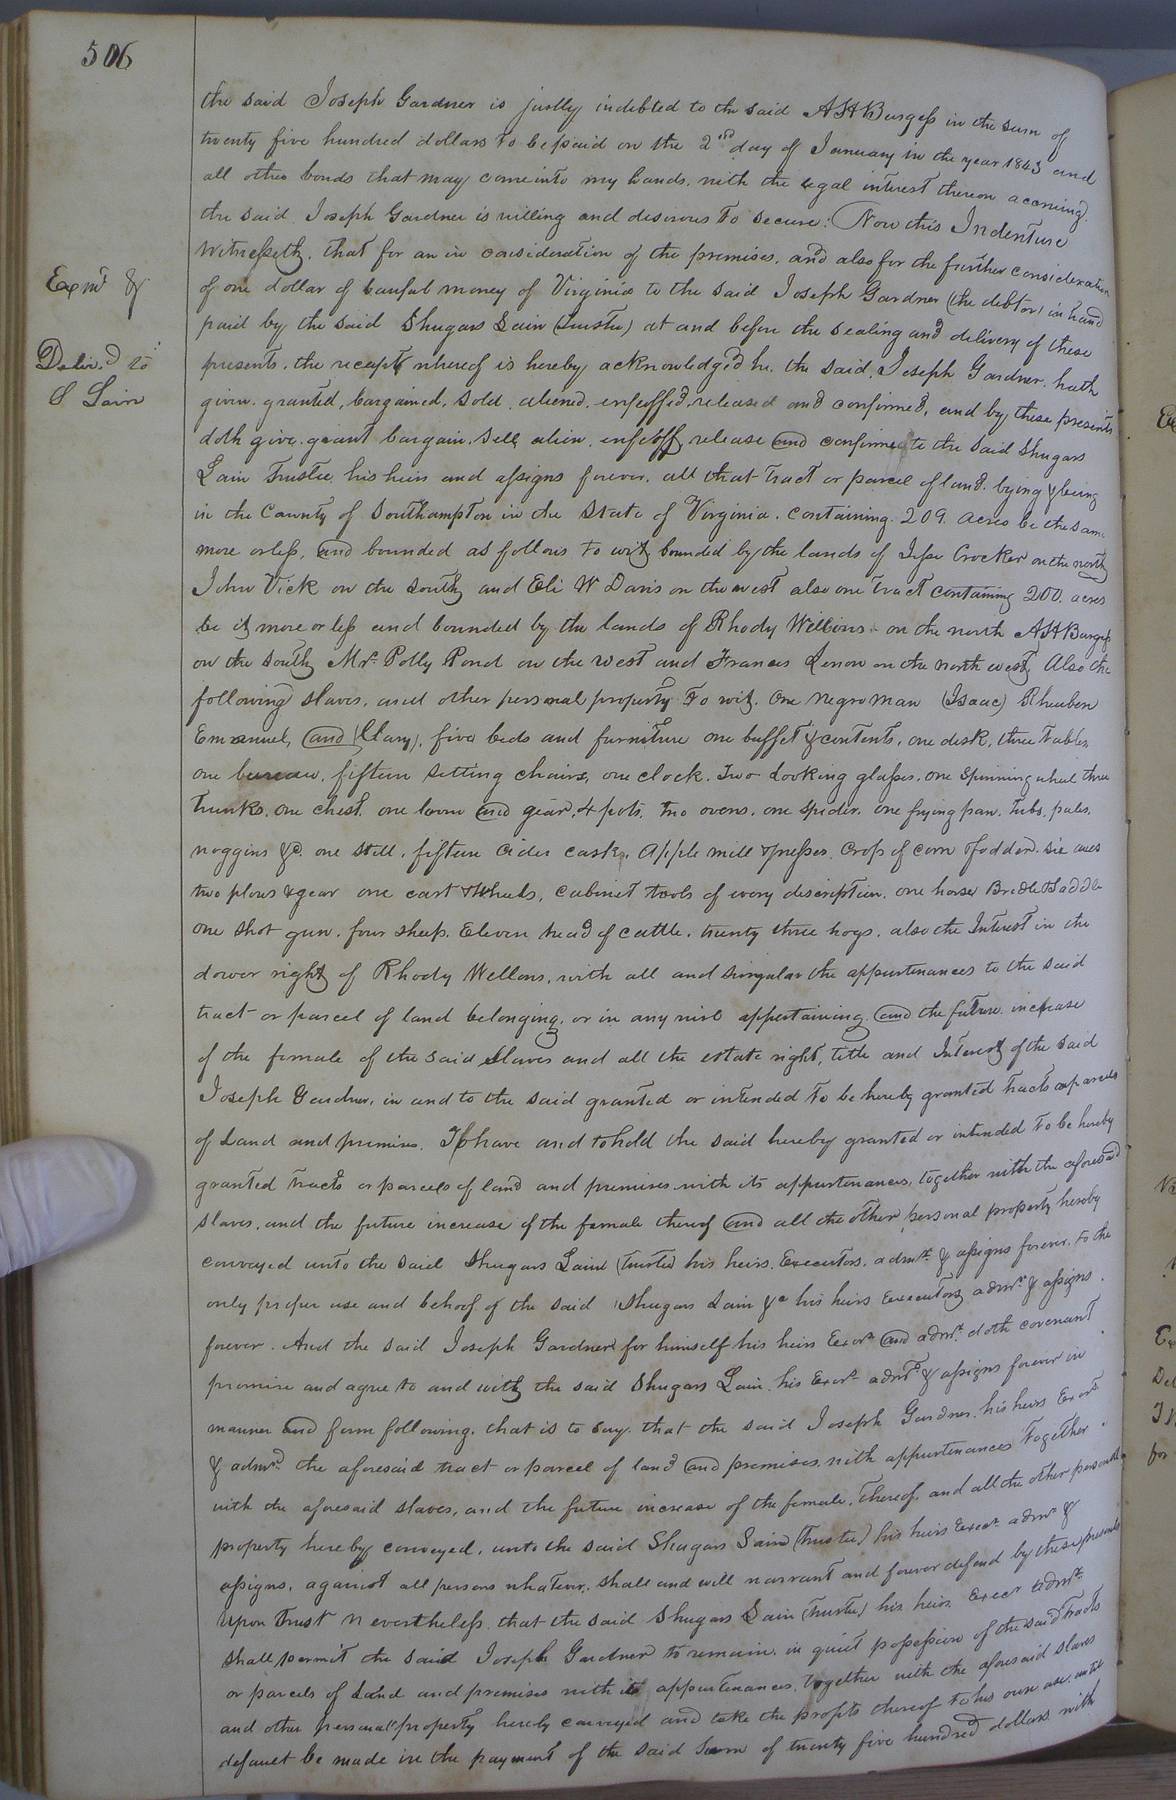 506
the said Joseph Gardner is justly indebted to the said A H Burgess in the sum of
twenty five hundred dollars to be paid on the 2nd day of January in the year 1843 and
all other bonds that may come into my hands. with the legal interest thereon accruing.
the said Joseph Gardner is willing and desirous to secure: Now this Indenture
Witnesseth, that for an in consideration of the premises, and also for the further consideration
Exmd &
of one dollar of lawful money of Virginia to the said Joseph Gardner (the debtor) in hand
paid by the said Shugars Lain (Trustee) at and before the sealing and delivery of these
Deliv.d to
S Lain
presents, the receipt whereof is hereby acknowledged he, the said, Joseph Gardner hath
given, granted, bargained, sold, aliened, enfeoffed, released and confirmed, and by these presents
doth give, grant bargain, sell alien, enfeoff, release and confirme to the said Shugars
Lain Trustee, his heirs and assigns forever, all that tract or parcel of land lying & being
in the County of Southampton in the State of Virginia. containing 209. acres be the same
more or less, and bounded as follows to wit, bounded by the lands of Jesse Crocker on the north
John Vick on the south and Eli W Davis on the west also one tract containing 200. acres
be it more or less and bounded by the lands of Rhody Wellons on the north A H Burgess
on the south Mrs Polly Pond on the west and Frances Lenow on the north west, Also the
following slaves, and other personal property to wit, One negro man (Isaac) Rheuben
Emanuel, and (Mary), five beds and furniture one buffet & contents, one desk, three tables
one bureau, fifteen setting chairs, one clock, Two Looking glasses, one spinning wheel three
trunks, one chest, one loom and gear, 4 pots, two ovens, one spider, one frying pan, tubs, pales,
noggins &c. one still, fifteen Cider casks, Apple mill & presses, Crop of corn & fodder, six axes
two plows & gear one cart & Wheels, cabinet tools of every description, one horse Bridle & Saddle
one shot gun, four sheep, Eleven head of cattle, twenty three hogs, also the Interest in the
dower right of Rhody Wellons, with all and singular the appurtenances to the said
tract or parcel of land belonging, or in any wise appertaining and the future increase
of the female of the said Slaves and all the estate right, title and Interest of the said
Joseph Gardner, in and to the said granted or intended to be hereby granted tracts or parcels
of Land and premises. To have and to hold the said hereby granted or intended to be hereby
granted tracts or parcels of land and premises with its appurtenances, together with the aforesaid
slaves, and the future increase of the female thereof and all the other personal property hereby
conveyed unto the said Shugars Laine (Trustee) his heirs, Executors, admrs & assigns forever, to the
only proper use and behoof of the said Shugars Lain &c his heirs Executors admrs & assigns
forever. And the said Joseph Gardner for himself his heirs Exors and admrs doth covenant
promise and agree to and with the said Shugars Lain his Exors admrs & assigns forever in
manner and form following, that is to say, that the said Joseph Gardner, his heirs Exors
& admrs the aforesaid tract or parcel of land and premises, with appurtenances Together
with the aforesaid slaves, and the future increase of the female, thereof, and all the other personal
property hereby conveyed, unto the said Shugars Lain (Trustee) his heirs Execr admrs &
assigns, against all persons whatever, shall and will warrant and forever defend by these presents
Upon Trust Nevertheless that the said Shugars Lain (Trustee) his heirs Execr admrs
shall permit the said Joseph Gardner to remain in quiet possession of the said tracts
or parcels of Land and premises with its appurtenances, together with the aforesaid slaves
and other personal property hereby conveyed and take the profits thereof to his own use, until
default be made in the payment of the said sum of twenty five hundred dollars with